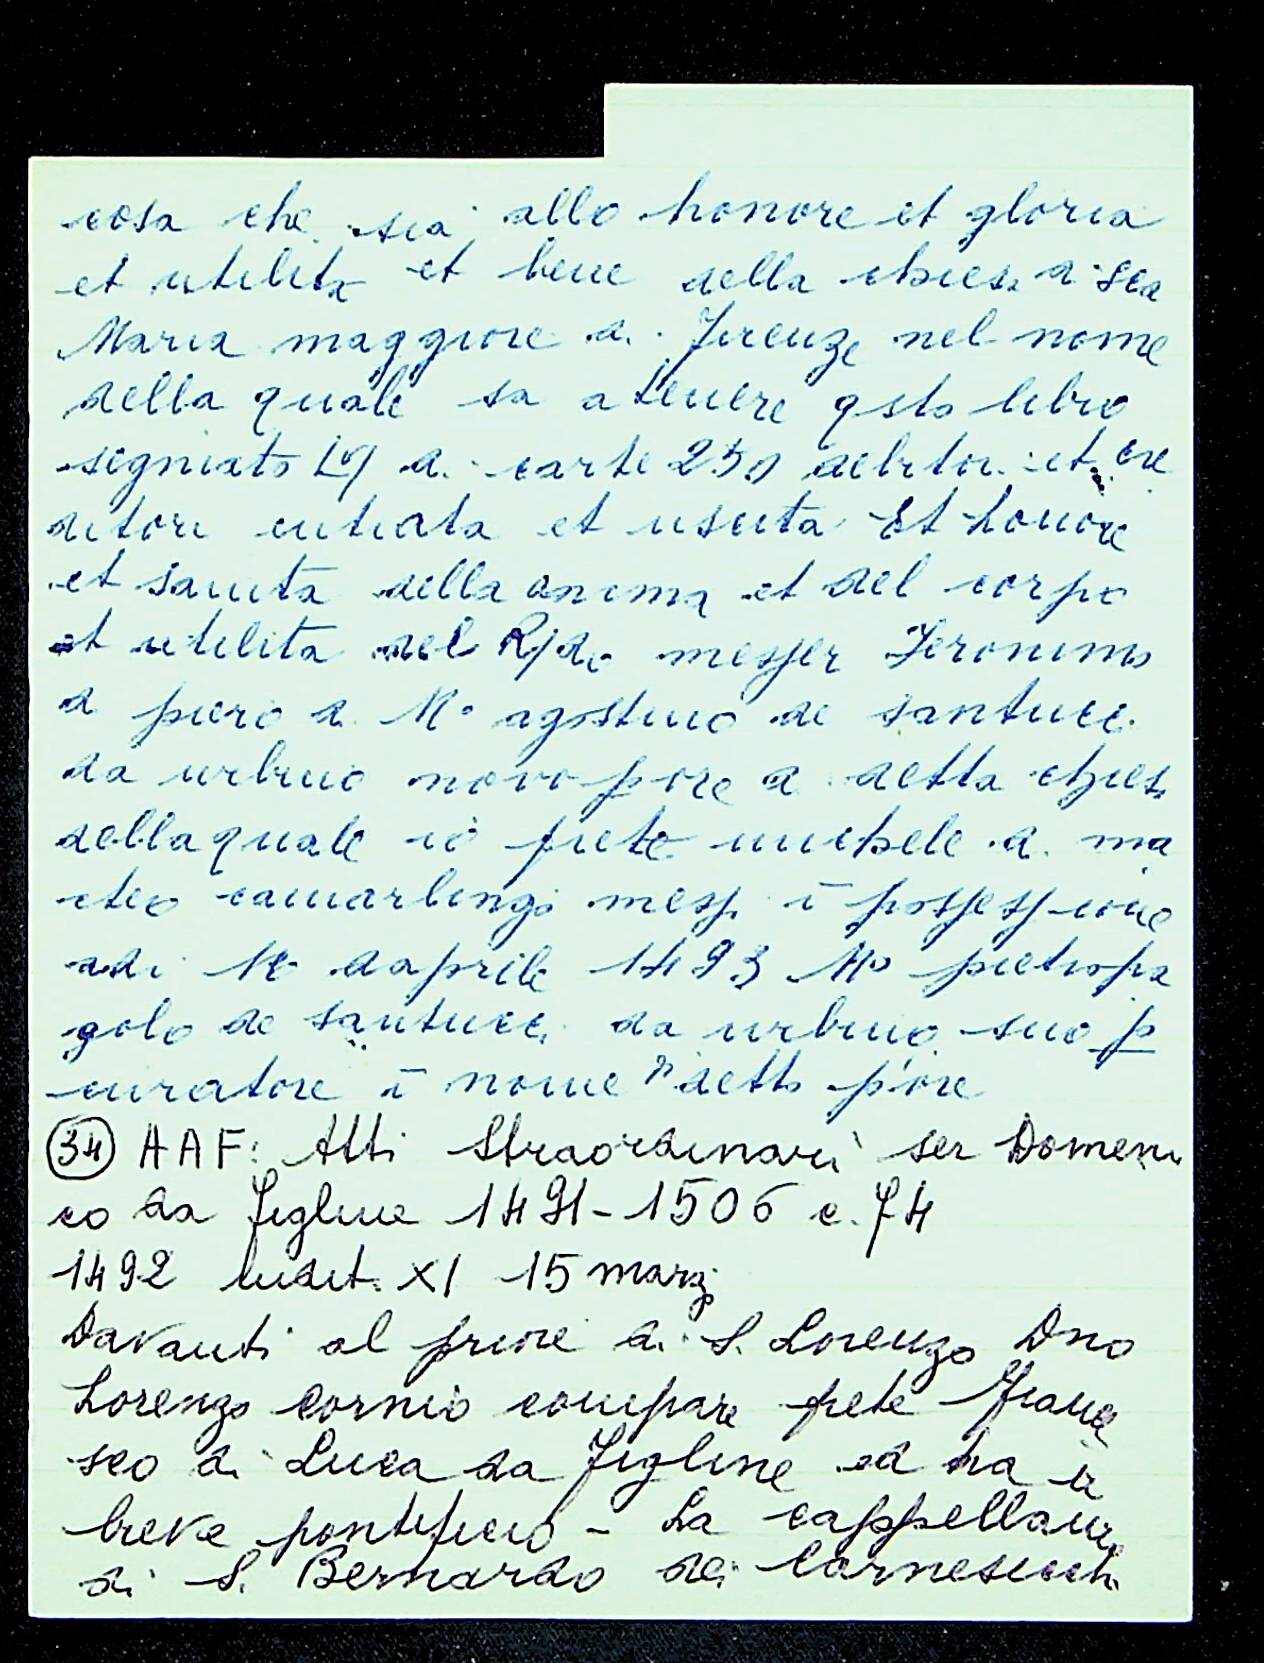 cosa che sia allo honore et gloria
et utilita et bene della chiesa di Sca
Maria maggiore di Firenze nel nome
della quale sa a tenere qsto libro
segniato di carte 250 debitori et cre
ditori entrata et uscita Et honore
et sanita della anima et del corpo
et utilita del R/do messer Jeronimo
di piero di Mº agostino de santucci
da urbino novo pore di detta chiesa
della quale io prete michele di ma
cteo camarlingo messo ĩ possessione
adi daprile 1493 Mº pietropa
golo de santucci da urbino suo p
curatore ĩ nome di detto p'ore
(34) AAF: Atti Straordinari ser Domeni
co da Figline 1491-1506 c. 74
1492 Indit. XI 15 marzo
Davanti al priore di S. Lorenzo Dno
Lorenzo Cornio compare prete France
sco di Luca da Figline ed ha il
breve pontificio - La cappellania
di S. Bernardo dei Carnesecchi